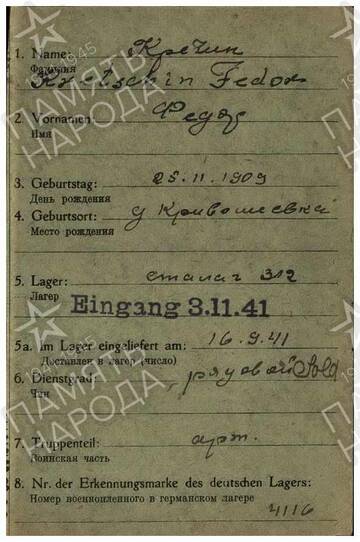 1. Name: Кречин
Фамилия
Kretschin Fedor
2. Vorname: Федор
Имя
3. Geburtstag: 25.11.1909
День рождения
4. Geburtsort: д Кривошеевка
Место рождения
5. Lager: сталаг 312
Лагер
Eingang 3.11.41
5a. im Lager eingeliefert am: 16.9.41
Доставлен в лагер (число)
6. Dienstgrad: рядовой Sold
Чин
7. Truppenteil: арт.
Воинская часть
8. Nr. der Erkennungsmarke des deutschen Lagers:
Номер военнопленного в германском лагере
4116
ПАМЯТЬ НАРОДА
1941-1945
ПАМЯТЬ НАРОДА
ПАМЯТЬ НАРОДА